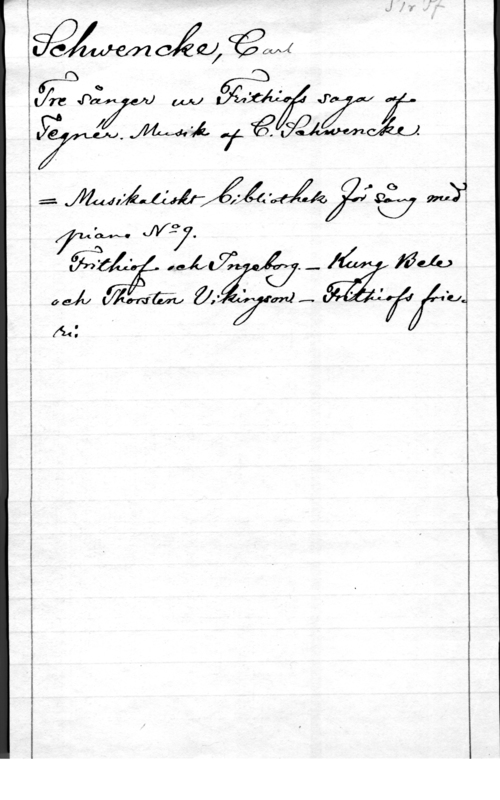 Schwencke, Carl
Tre sånger ur Frithiofs saga af
Tegnér. Musik af C. Schwencke.
= Musikaliskt Bibliothek för Sång med
piano Nº 9.
Frithiof och Ingeborg. – Kung Bele
och Thorsten Vikingson – Frithiofs frie-
ri: